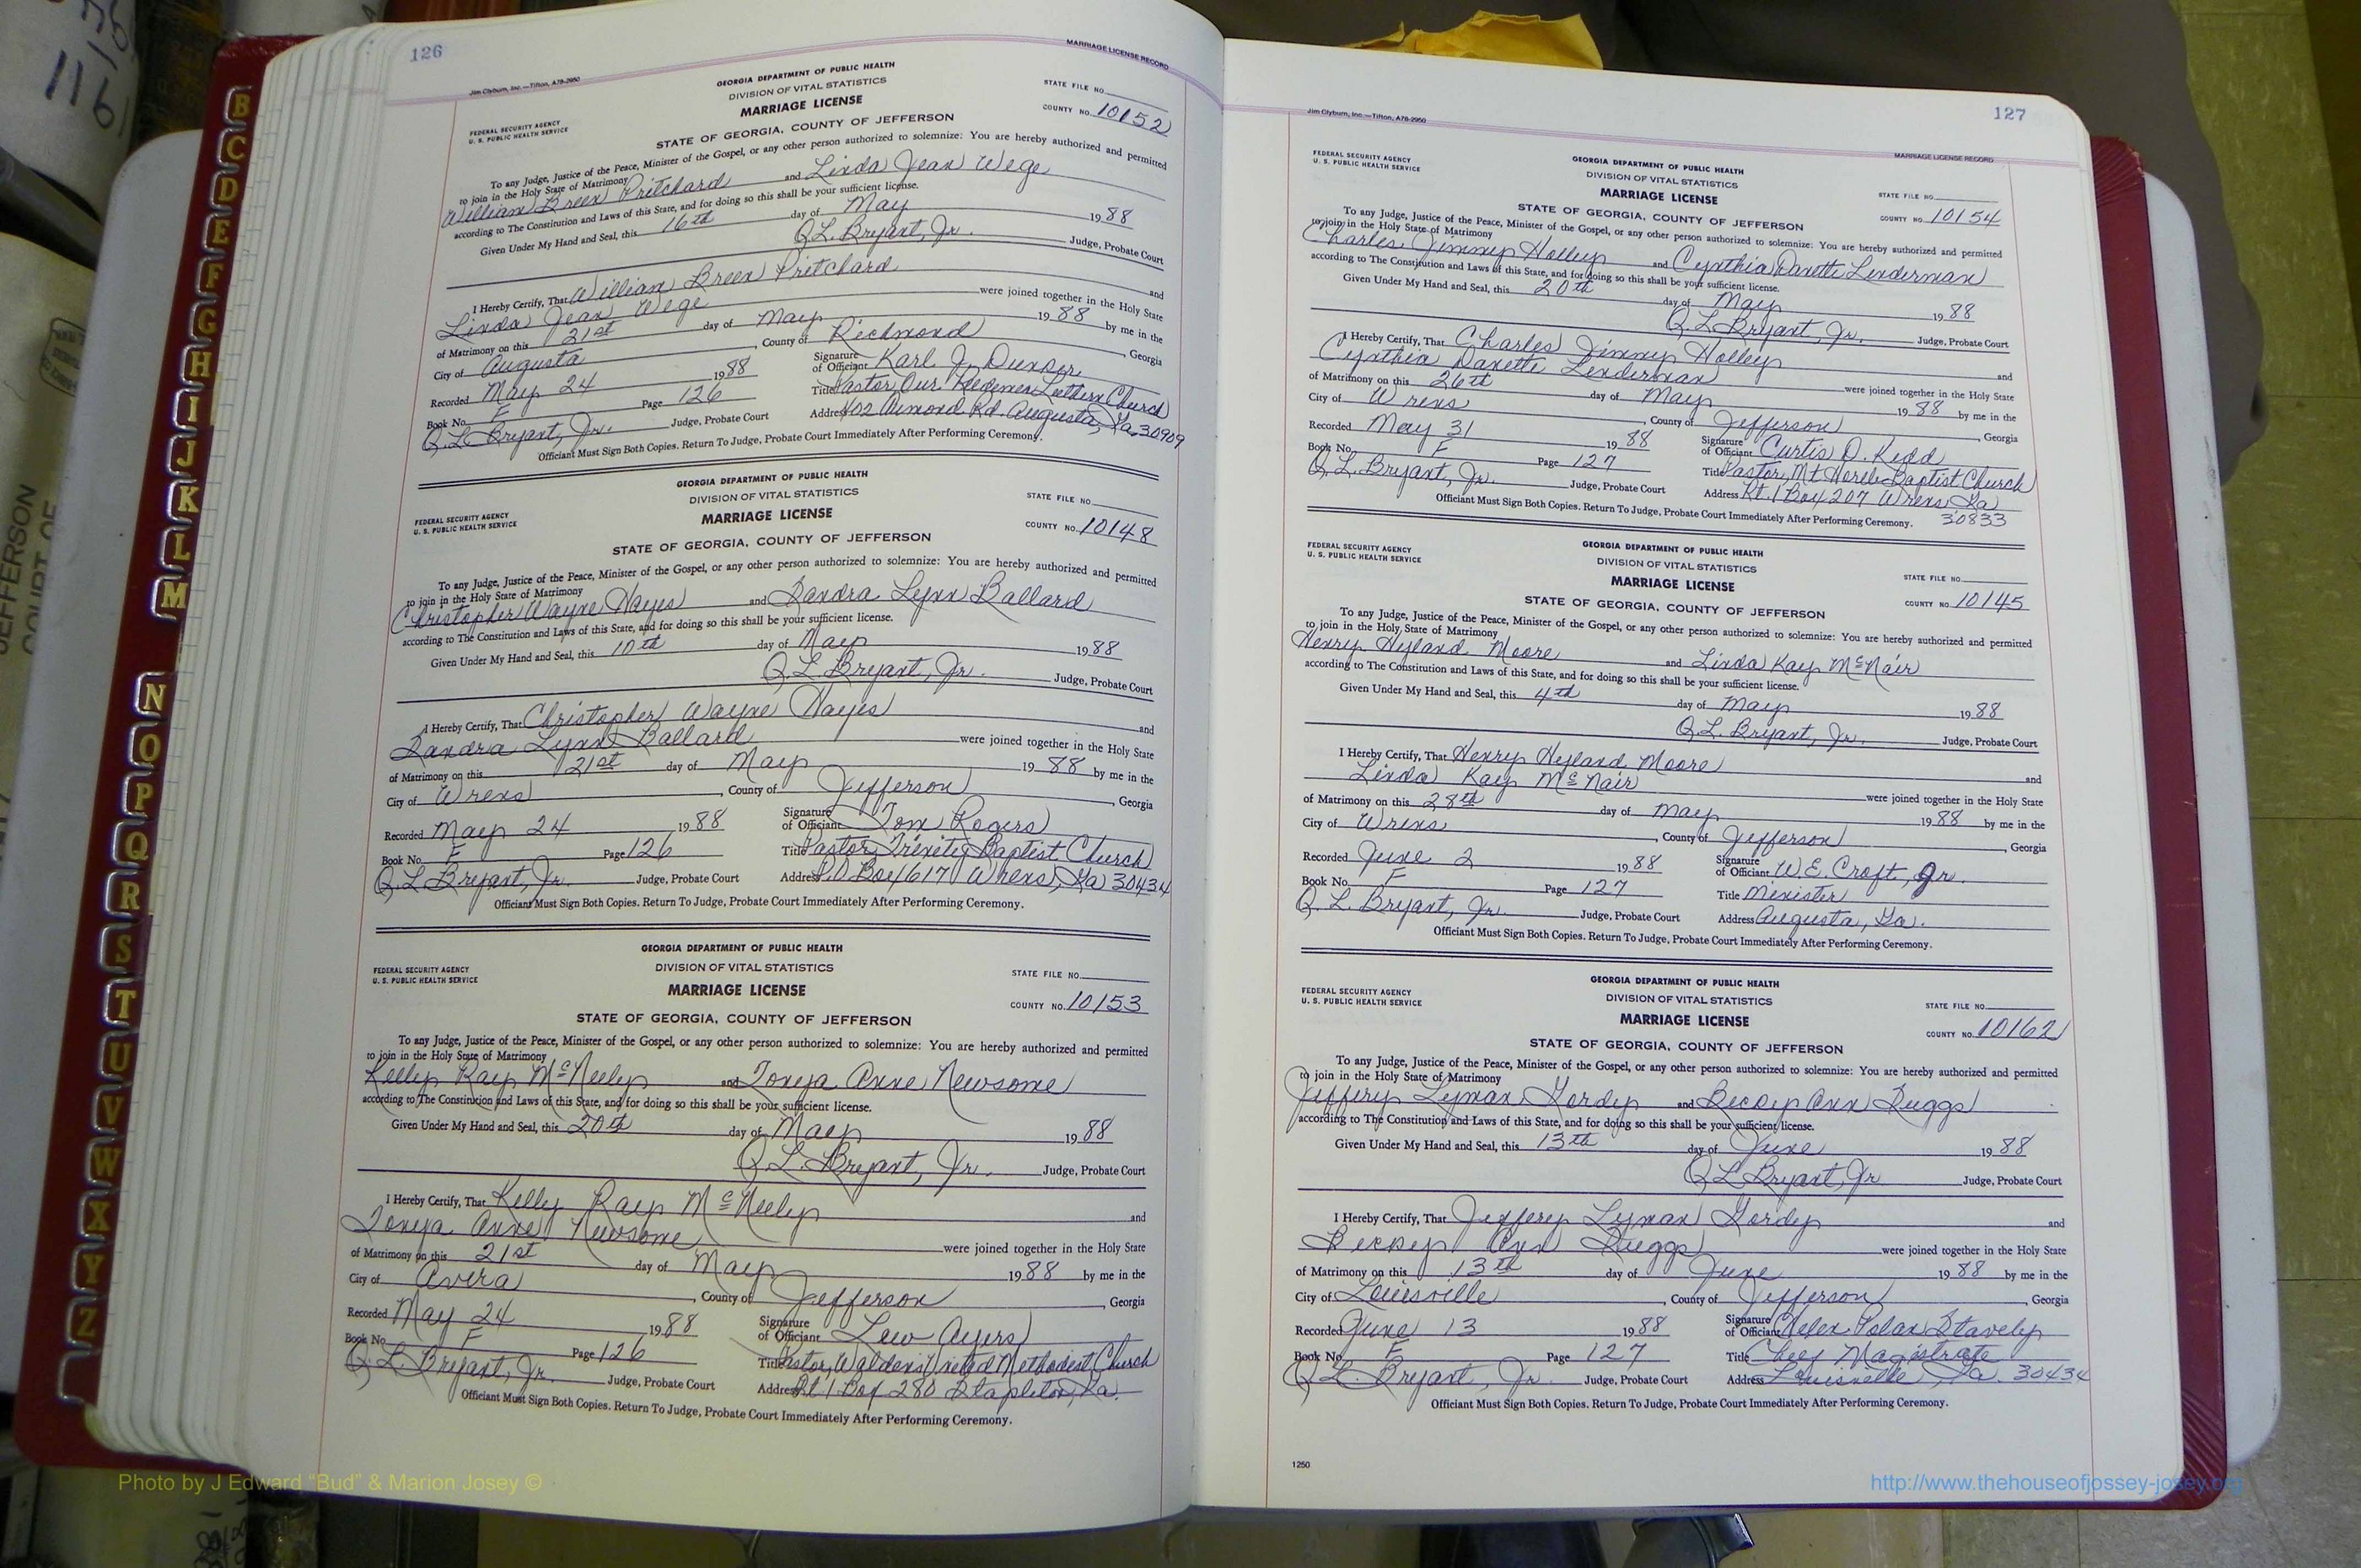 126
Jim Clyburn, Inc.—Tifton, A78-2950
MARRIAGE LICENSE RECORD
GEORGIA DEPARTMENT OF PUBLIC HEALTH
DIVISION OF VITAL STATISTICS
MARRIAGE LICENSE
STATE OF GEORGIA, COUNTY OF JEFFERSON
FEDERAL SECURITY AGENCY
U. S. PUBLIC HEALTH SERVICE
STATE FILE NO.
COUNTY NO. 10152
To any Judge, Justice of the Peace, Minister of the Gospel, or any other person authorized to solemnize: You are hereby authorized and permitted
to join in the Holy State of Matrimony
William Breen Pritchard and Linda Jean Wege
according to The Constitution and Laws of this State, and for doing so this shall be your sufficient license.
Given Under My Hand and Seal, this 16th day of May 1988
Q.L. Bryant, Jr. Judge, Probate Court
I Hereby Certify, That William Breen Pritchard and
Linda Jean Wege were joined together in the Holy State
of Matrimony on this 21st day of May 1988 by me in the
City of Augusta, County of Richmond, Georgia
Recorded May 24 1988 Signature of Officiant Karl J.
Book No. F Page 126 Title Pastor, Our Redeemer Luthern Church
Q.L. Bryant, Jr. Judge, Probate Court Address 402 Aumond Rd. Augusta, Ga. 30909
Officiant Must Sign Both Copies. Return To Judge, Probate Court Immediately After Performing Ceremony.
GEORGIA DEPARTMENT OF PUBLIC HEALTH
DIVISION OF VITAL STATISTICS
MARRIAGE LICENSE
STATE OF GEORGIA, COUNTY OF JEFFERSON
FEDERAL SECURITY AGENCY
U. S. PUBLIC HEALTH SERVICE
STATE FILE NO.
COUNTY NO. 10148
To any Judge, Justice of the Peace, Minister of the Gospel, or any other person authorized to solemnize: You are hereby authorized and permitted
to join in the Holy State of Matrimony
Christopher Wayne Hayes and Sandra Lynn Ballard
according to The Constitution and Laws of this State, and for doing so this shall be your sufficient license.
Given Under My Hand and Seal, this 10th day of May 1988
Q.L. Bryant, Jr. Judge, Probate Court
I Hereby Certify, That Christopher Wayne Hayes and
Sandra Lynn Ballard were joined together in the Holy State
of Matrimony on this 21st day of May 1988 by me in the
City of Wrens, County of Jefferson, Georgia
Recorded May 24 1988 Signature of Officiant Tom Rogers
Book No. F Page 126 Title Pastor, Trinity Baptist Church
Q.L. Bryant, Jr. Judge, Probate Court Address P.O. Box 617 Wrens, Ga 30434
Officiant Must Sign Both Copies. Return To Judge, Probate Court Immediately After Performing Ceremony.
GEORGIA DEPARTMENT OF PUBLIC HEALTH
DIVISION OF VITAL STATISTICS
MARRIAGE LICENSE
STATE OF GEORGIA, COUNTY OF JEFFERSON
FEDERAL SECURITY AGENCY
U. S. PUBLIC HEALTH SERVICE
STATE FILE NO.
COUNTY NO. 10153
To any Judge, Justice of the Peace, Minister of the Gospel, or any other person authorized to solemnize: You are hereby authorized and permitted
to join in the Holy State of Matrimony
Kelly Ray McNeely and Tonya Anne Newsome
according to The Constitution and Laws of this State, and for doing so this shall be your sufficient license.
Given Under My Hand and Seal, this 20th day of May 1988
Q.L. Bryant, Jr. Judge, Probate Court
I Hereby Certify, That Kelly Ray McNeely and
Tonya Anne Newsome were joined together in the Holy State
of Matrimony on this 21st day of May 1988 by me in the
City of Avera, County of Jefferson, Georgia
Recorded May 24 1988 Signature of Officiant Lew Ayers
Book No. F Page 126 Title Pastor, Waldens United Methodist Church
Q.L. Bryant, Jr. Judge, Probate Court Address Rt. 1 Box 280 Stapleton, Ga.
Officiant Must Sign Both Copies. Return To Judge, Probate Court Immediately After Performing Ceremony.
127
Jim Clyburn, Inc.—Tifton, A78-2950
MARRIAGE LICENSE RECORD
FEDERAL SECURITY AGENCY
U. S. PUBLIC HEALTH SERVICE
GEORGIA DEPARTMENT OF PUBLIC HEALTH
DIVISION OF VITAL STATISTICS
MARRIAGE LICENSE
STATE OF GEORGIA, COUNTY OF JEFFERSON
STATE FILE NO.
COUNTY NO. 10154
To any Judge, Justice of the Peace, Minister of the Gospel, or any other person authorized to solemnize: You are hereby authorized and permitted
to join in the Holy State of Matrimony
Charles Jimmy Holley and Cynthia Danette Linderman
according to The Constitution and Laws of this State, and for doing so this shall be your sufficient license.
Given Under My Hand and Seal, this 20th day of May 1988
Q.L. Bryant, Jr. Judge, Probate Court
I Hereby Certify, That Charles Jimmy Holley and
Cynthia Danette Linderman were joined together in the Holy State
of Matrimony on this 26th day of May 1988 by me in the
City of Wrens, County of Jefferson, Georgia
Recorded May 31 1988 Signature of Officiant Curtis O. Kidd
Book No. F Page 127 Title Pastor, Mt Horeb Baptist Church
Q.L. Bryant, Jr. Judge, Probate Court Address Rt. 1 Box 207 Wrens Ga
30833
Officiant Must Sign Both Copies. Return To Judge, Probate Court Immediately After Performing Ceremony.
FEDERAL SECURITY AGENCY
U. S. PUBLIC HEALTH SERVICE
GEORGIA DEPARTMENT OF PUBLIC HEALTH
DIVISION OF VITAL STATISTICS
MARRIAGE LICENSE
STATE OF GEORGIA, COUNTY OF JEFFERSON
STATE FILE NO.
COUNTY NO. 10145
To any Judge, Justice of the Peace, Minister of the Gospel, or any other person authorized to solemnize: You are hereby authorized and permitted
to join in the Holy State of Matrimony
Henry Hyland Moore and Linda Kay McNair
according to The Constitution and Laws of this State, and for doing so this shall be your sufficient license.
Given Under My Hand and Seal, this 4th day of May 1988
Q.L. Bryant, Jr. Judge, Probate Court
I Hereby Certify, That Henry Hyland Moore and
Linda Kay McNair were joined together in the Holy State
of Matrimony on this 28th day of May 1988 by me in the
City of Wrens, County of Jefferson, Georgia
Recorded June 2 1988 Signature of Officiant W.E. Croft, Jr.
Book No. F Page 127 Title Minister
Q.L. Bryant, Jr. Judge, Probate Court Address Augusta, Ga.
Officiant Must Sign Both Copies. Return To Judge, Probate Court Immediately After Performing Ceremony.
FEDERAL SECURITY AGENCY
U. S. PUBLIC HEALTH SERVICE
GEORGIA DEPARTMENT OF PUBLIC HEALTH
DIVISION OF VITAL STATISTICS
MARRIAGE LICENSE
STATE OF GEORGIA, COUNTY OF JEFFERSON
STATE FILE NO.
COUNTY NO. 10162
To any Judge, Justice of the Peace, Minister of the Gospel, or any other person authorized to solemnize: You are hereby authorized and permitted
to join in the Holy State of Matrimony
Jeffery Lyman Yordy and Becky Ann Suggs
according to The Constitution and Laws of this State, and for doing so this shall be your sufficient license.
Given Under My Hand and Seal, this 13th day of June 1988
Q.L. Bryant, Jr Judge, Probate Court
I Hereby Certify, That Jeffery Lyman Yordy and
Becky Ann Suggs were joined together in the Holy State
of Matrimony on this 13th day of June 1988 by me in the
City of Louisville, County of Jefferson, Georgia
Recorded June 13 1988 Signature of Officiant Helen Stavely
Book No. F Page 127 Title Chief Magistrate
Q.L. Bryant, Jr. Judge, Probate Court Address Louisville, Ga. 30434
Officiant Must Sign Both Copies. Return To Judge, Probate Court Immediately After Performing Ceremony.
1250
B
C
D
E
F
G
H
I
J
K
L
M
N
O
P
Q
R
S
T
U
V
W
X
Y
Z
116
JEFFERSON
COURT OF
Photo by J Edward "Bud" & Marion Josey ©
http://www.thehouseofjossey-josey.org